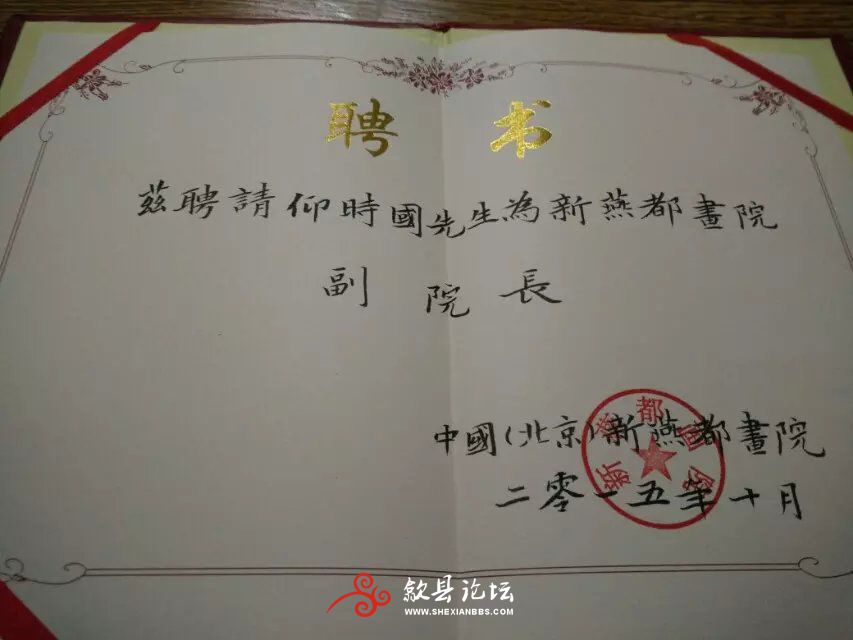 聘书
茲聘請仰時國先生為新燕都畫院
副院長
中國(北京)新燕都畫院
二零一五年十月
新燕都画院
歙县论坛
WWW.SHEXIANBBS.COM